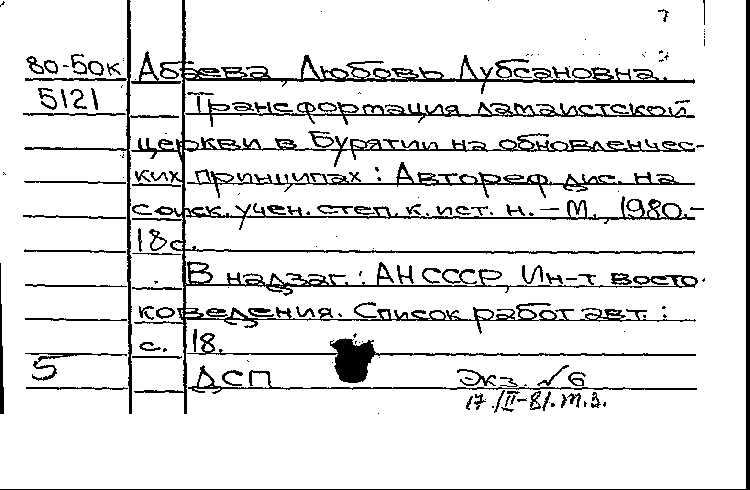 7
80-50к Абаева, Любовь Лубсановна.
5121 Трансфортация ламаистской
церкви в Бурятии на обновленчес-
ких принципах : Автореф. дис. на
соиск. учен. степ. к. ист. н. – М., 1980.–
18с.
В надзаг. : АН СССР, Ин-т восто-
коведения. Список работ авт. :
с. 18.
5 ДСП Экз. № 6
17./II-81. т.з.